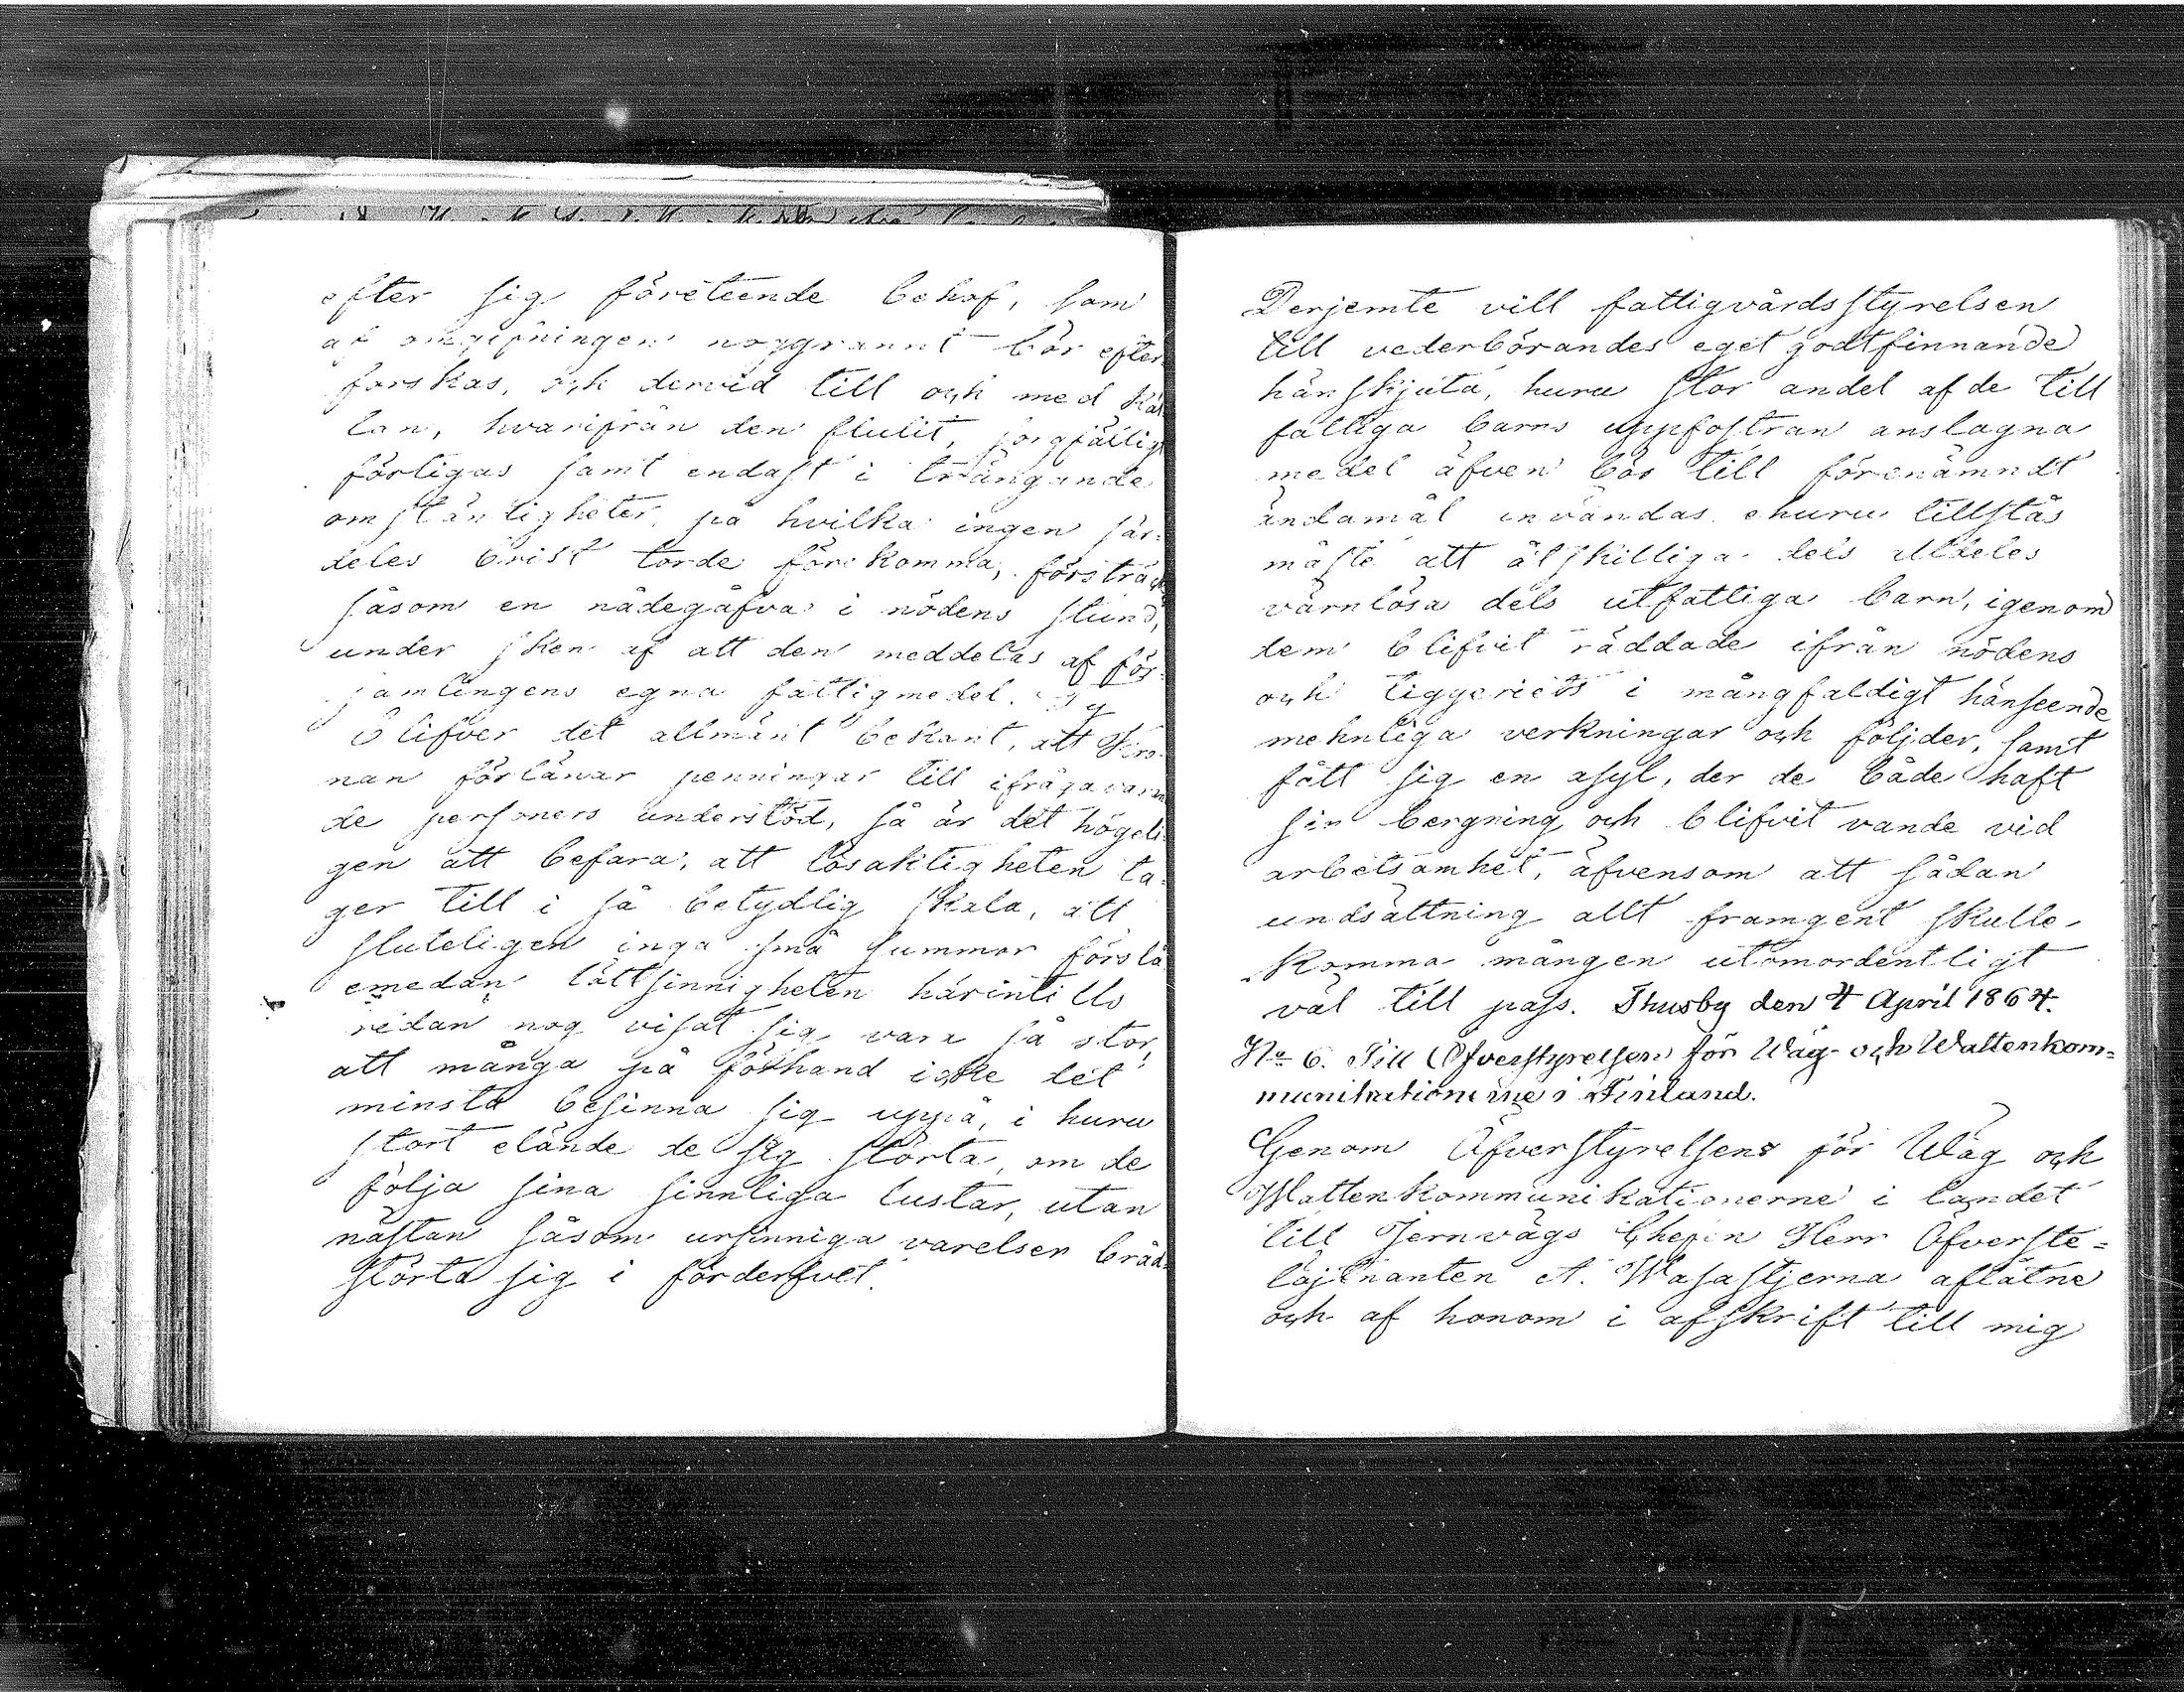 efter sig företeende behof, som
af omgifningen noggrannt bör efter
forskas, och dervid till och med käl
lan, hvarifrån den flutit, sorgfälligt
förtigas samt endast i trängande
omständigheter, på hvilka ingen sär=
deles brist torde förekomma, försträckas
såsom en nådegåfva i nödens stund,
under sken af att den meddelas af för=
samlingens egna fattigmedel.
Blifver det allmänt bekant, att Kro=
nan förlänar penningar till ifrågavaran
de personers understöd, så är det högeli=
gen att befara, att lösaktigheten ta=
ger till i så betydlig skala, att
sluteligen inga små summor förslå
emedan lättsinnigheten härintills
redan nog visat sig vara så stor,
att många på förhand icke det
minsta besinna sig uppå, i huru
stort elände de sig störta, om de
följa sina sinnliga lustar, utan
nästan såsom ursinniga varelser bråd=
störta sig i förderfvet.
Derjemte vill fattigvårdsstyrelsen
till vederbörandes eget godtfinnande
hänskjuta, huru stor andel af de till
fattiga barns uppfostran anslagna
medel äfven bör till förenämndt
ändamål användas, ehuru tillstås
måste att åtskilliga dels alldeles
värnlösa dels utfattiga barn, igenom
dem blifvit räddade ifrån nödens
och tiggeriets i mångfaldigt hänseende
mehnliga verkningar och följder, samt
fått sig en asyl, der de både haft
sin bergning och blifvit vande vid
arbetsamhet, äfvensom att sådan
undsättning allt framgent skulle
komma mången utomordentligt
väl till pass. Thusby den 4 April 1864.
No 6. Till Öfverstyrelsen för Wäg- och Wattenkom=
munikationerne i Finland.
Genom Öfverstyrelsens för Wäg och
Wattenkommunikationerne i landet
till Jernvägs Chefen Herr Öfverste=
löjtnanten A. Wasastjerna aflåtne
och af honom i afskrift till mig